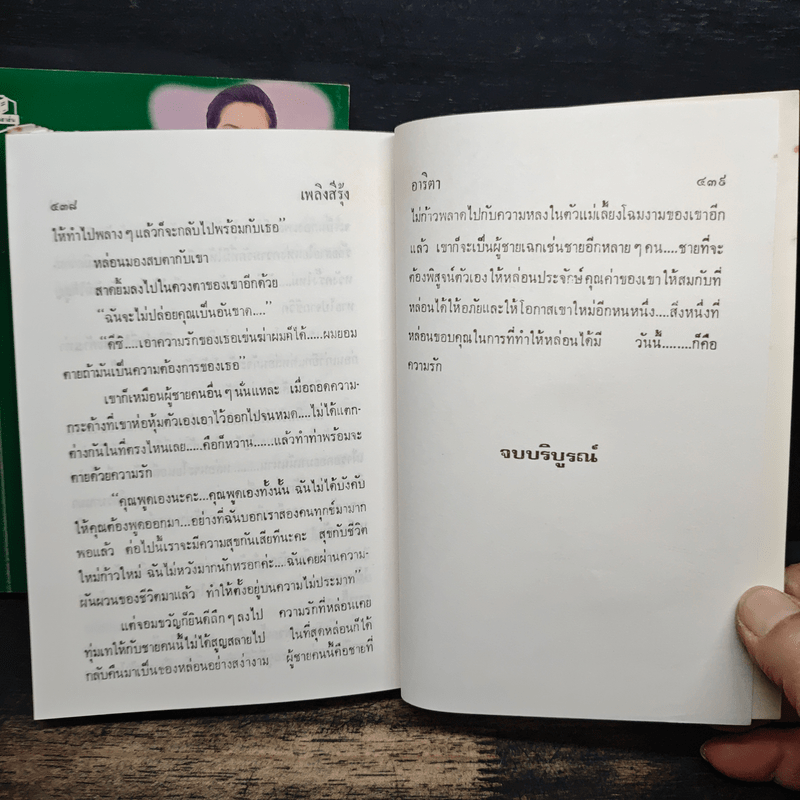 ๔๓๘ เพลิงสีรุ้ง
ให้ทำไปพลาง ๆ แล้วก็จะกลับไปพร้อมกับเธอ”
หล่อนมองสบตากับเขา
สาดยิ้มลงไปในดวงตาของเขาอีกด้วย
“ฉันจะไม่ปล่อยคุณเป็นอันขาด....”
“ดีซิ.....เอาความรักของเธอเข่นฆ่าผมก็ได้.....ผมยอม
ตายถ้ามันเป็นความต้องการของเธอ”
เขาก็เหมือนผู้ชายคนอื่น ๆ นั่นแหละ เมื่อถอดความ-
กระด้างที่เขาห่อหุ้มตัวเองเอาไว้ออกไปจนหมด....ไม่ได้แตก-
ต่างกันในที่ตรงไหนเลย.....คือก็หวาน......แล้วทำท่าพร้อมจะ
ตายด้วยความรัก
“คุณพูดเองนะคะ...คุณพูดเองทั้งนั้น ฉันไม่ได้บังคับ
ให้คุณต้องพูดออกมา...อย่างที่ฉันบอกเราสองคนทุกข์มามาก
พอแล้ว ต่อไปนี้เราจะมีความสุขกันเสียทีนะคะ สุขกับชีวิต
ใหม่ก้าวใหม่ ฉันไม่หวังมากนักหรอกค่ะ....ฉันเคยผ่านความ-
ผันผวนของชีวิตมาแล้ว ทำให้ตั้งอยู่บนความไม่ประมาท”
แต่จอมขวัญก็ยินดีลึก ๆ ลงไป ความรักที่หล่อนเคย
ทุ่มเทให้กับชายคนนี้ไม่ได้สูญสลายไป ในที่สุดหล่อนก็ได้
กลับคืนมาเป็นของหล่อนอย่างสง่างาม ผู้ชายคนนี้คือชายที่
อาริตา ๔๓๙
ไม่ก้าวพลาดไปกับความหลงในตัวแม่เลี้ยงโฉมงามของเขาอีก
แล้ว เขาก็จะเป็นผู้ชายเฉกเช่นชายอีกหลาย ๆ คน....ชายที่จะ
ต้องพิสูจน์ตัวเอง ให้หล่อนประจักษ์คุณค่าของเขาให้สมกับที่
หล่อนได้ให้อภัยและให้โอกาสเขาใหม่อีกหนหนึ่ง....สิ่งหนึ่งที่
หล่อนขอบคุณในการที่ทำให้หล่อนได้มี วันนี้........ก็คือ
ความรัก
จบบริบูรณ์